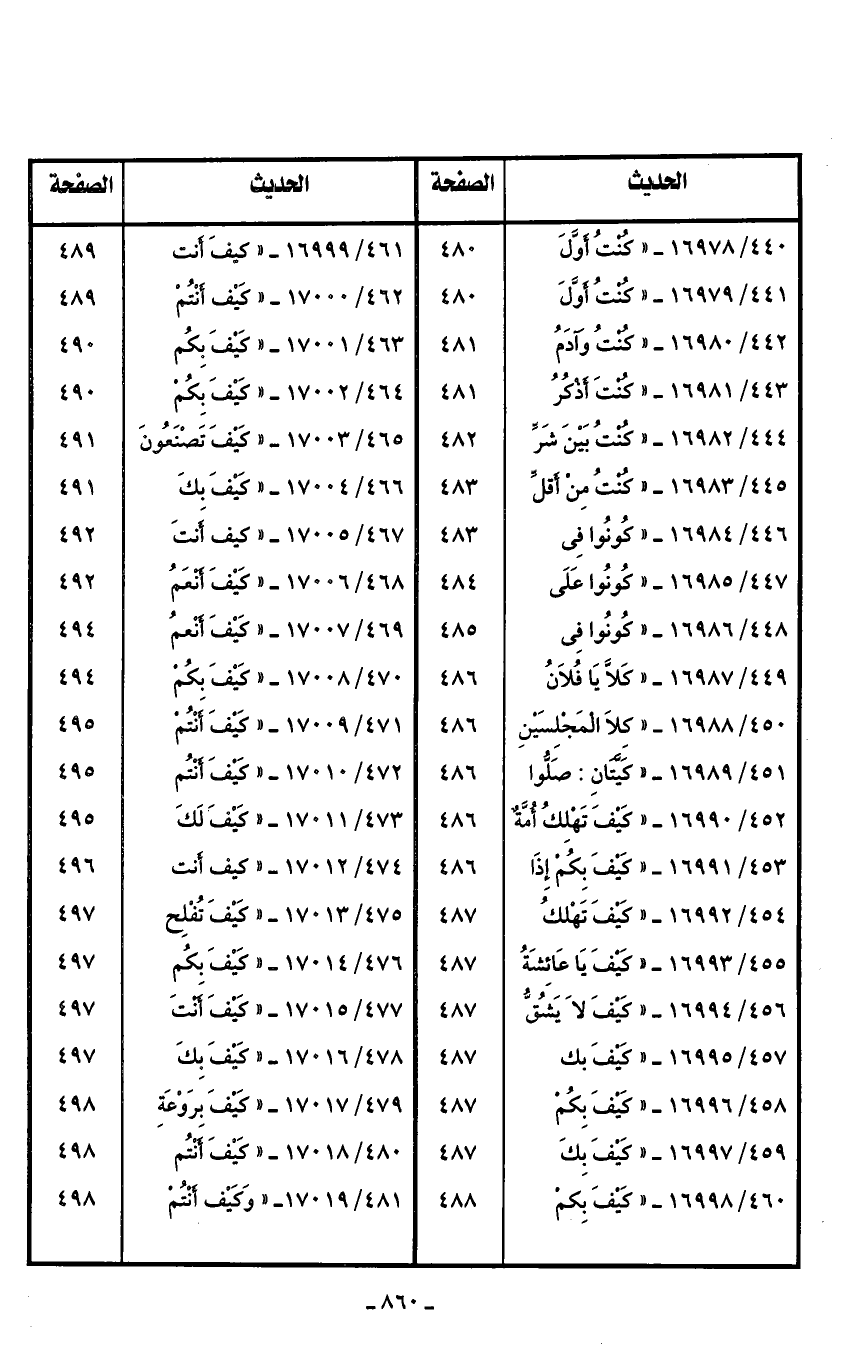 الحديث الصفحة الحديث الصفحة
٤٤٠/ ١٦٩٧٨ ـ « كُنْتُ أَوَّلَ ٤٨٠ ٤٦١/ ١٦٩٩٩ ـ « كيفَ أَنت ٤٨٩
٤٤١/ ١٦٩٧٩ ـ « كُنْتُ أَوَّلَ ٤٨٠ ٤٦٢/ ١٧٠٠٠ ـ « كَيْف أَنْتُمْ ٤٨٩
٤٤٢/ ١٦٩٨٠ ـ « كُنْتُ وآدَمُ ٤٨١ ٤٦٣/ ١٧٠٠١ ـ « كَيْفَ بِكُم ٤٩٠
٤٤٣/ ١٦٩٨١ ـ « كُنْتَ أَذْكُرُ ٤٨١ ٤٦٤/ ١٧٠٠٢ ـ « كَيْفَ بِكُمْ ٤٩٠
٤٤٤/ ١٦٩٨٢ ـ « كُنْتُ بَيْنَ شَرِّ ٤٨٢ ٤٦٥/ ١٧٠٠٣ ـ « كَيْفَ تَصْنَعُونَ ٤٩١
٤٤٥/ ١٦٩٨٣ ـ « كُنْتُ مِنْ أَقلِّ ٤٨٣ ٤٦٦/ ١٧٠٠٤ ـ « كَيْفَ بِكَ ٤٩١
٤٤٦/ ١٦٩٨٤ ـ « كُونُوا فِى ٤٨٣ ٤٦٧/ ١٧٠٠٥ ـ « كيف أَنتَ ٤٩٢
٤٤٧/ ١٦٩٨٥ ـ « كُونُوا عَلَى ٤٨٤ ٤٦٨/ ١٧٠٠٦ ـ « كَيْفَ أَنْعَمُ ٤٩٢
٤٤٨/ ١٦٩٨٦ ـ « كُونُوا فِى ٤٨٥ ٤٦٩/ ١٧٠٠٧ ـ « كَيْفَ أَنْعمُ ٤٩٤
٤٤٩/ ١٦٩٨٧ ـ « كَلاَّ يَا فُلاَنُ ٤٨٦ ٤٧٠/ ١٧٠٠٨ ـ « كَيْفَ بِكُمْ ٤٩٤
٤٥٠/ ١٦٩٨٨ ـ « كِلاَ الْمَجْلِسَيْنِ ٤٨٦ ٤٧١/ ١٧٠٠٩ ـ « كَيْفَ أَنْتُمْ ٤٩٥
٤٥١/ ١٦٩٨٩ ـ « كَيَّتَانِ : صَلُّوا ٤٨٦ ٤٧٢/ ١٧٠١٠ ـ « كَيْفَ أَنْتُم ٤٩٥
٤٥٢/ ١٦٩٩٠ ـ « كَيْفَ تَهْلِكُ أُمَّةٌ ٤٨٦ ٤٧٣/ ١٧٠١١ ـ « كَيْفَ لَكَ ٤٩٥
٤٥٣/ ١٦٩٩١ ـ « كَيْفَ بِكُمْ إِذَا ٤٨٦ ٤٧٤/ ١٧٠١٢ ـ « كيف أَنت ٤٩٦
٤٥٤/ ١٦٩٩٢ ـ « كَيْفَ تَهْلكُ ٤٨٧ ٤٧٥/ ١٧٠١٣ ـ « كَيْفَ تُفْلِح ٤٩٧
٤٥٥/ ١٦٩٩٣ ـ « كَيْفَ يَا عَائِشَةُ ٤٨٧ ٤٧٦/ ١٧٠١٤ ـ « كَيْفَ بِكُم ٤٩٧
٤٥٦/ ١٦٩٩٤ ـ « كَيْفَ لاَ يَشُقُّ ٤٨٧ ٤٧٧/ ١٧٠١٥ ـ « كَيْفَ أَنْتَ ٤٩٧
٤٥٧/ ١٦٩٩٥ ـ « كَيْفَ بك ٤٨٧ ٤٧٨/ ١٧٠١٦ ـ « كَيْفَ بِكَ ٤٩٧
٤٥٨/ ١٦٩٩٦ ـ « كَيْفَ بِكُمْ ٤٨٧ ٤٧٩/ ١٧٠١٧ ـ « كَيْفَ بِرَوْعَةِ ٤٩٨
٤٥٩/ ١٦٩٩٧ ـ « كَيْفَ بِكَ ٤٨٧ ٤٨٠/ ١٧٠١٨ ـ « كَيْفَ أَنْتُم ٤٩٨
٤٦٠/ ١٦٩٩٨ ـ « كَيْفَ بِكمْ ٤٨٨ ٤٨١/ ١٧٠١٩ـ « وَكَيْف أَنْتُمْ ٤٩٨
ـ ٨٦٠ ـ